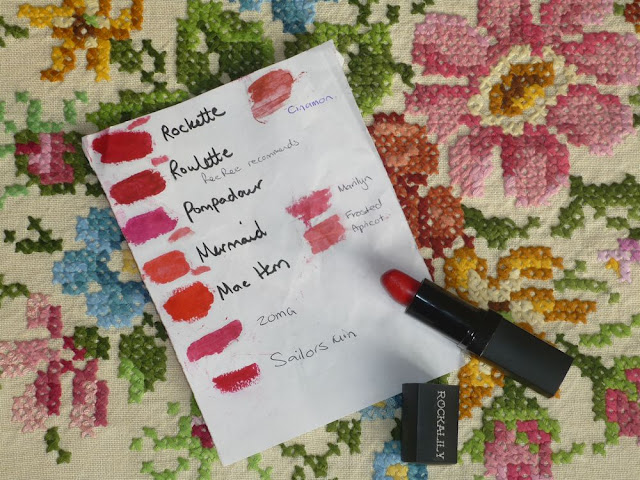 Rockette
Cinamon.
Roulette
RocRoc recommends
Pompadour
Marilyn
Frosted
Apricot.
Mermaid
Mae Hem
ZOMG
Sailors Ruin
ROCKALILY